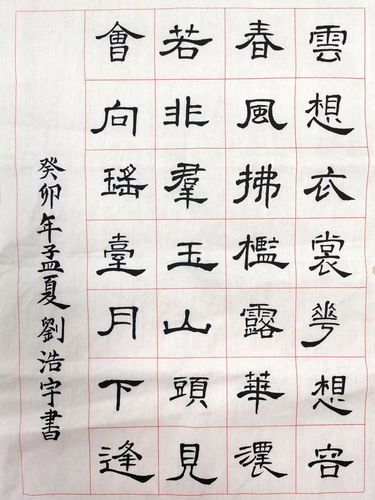 雲想衣裳花想容
春風拂檻露華濃
若非羣玉山頭見
會向瑤臺月下逢
癸卯年孟夏劉浩宇書